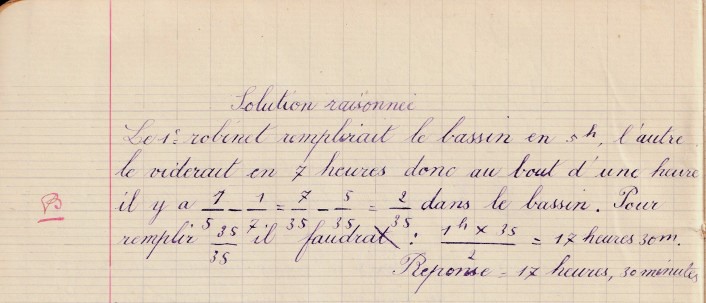 Solution raisonnée
Le 1er robinet remplirait le bassin en 5h, l'autre
le viderait en 7 heures donc au bout d'une heure
B il y a 1/5 - 1/7 = 7/35 - 5/35 = 2/35 dans le bassin. Pour
remplir 35/35 il faudrat : 1h × 35/2 = 17 heures 30m.
Reponse = 17 heures, 30 minutes